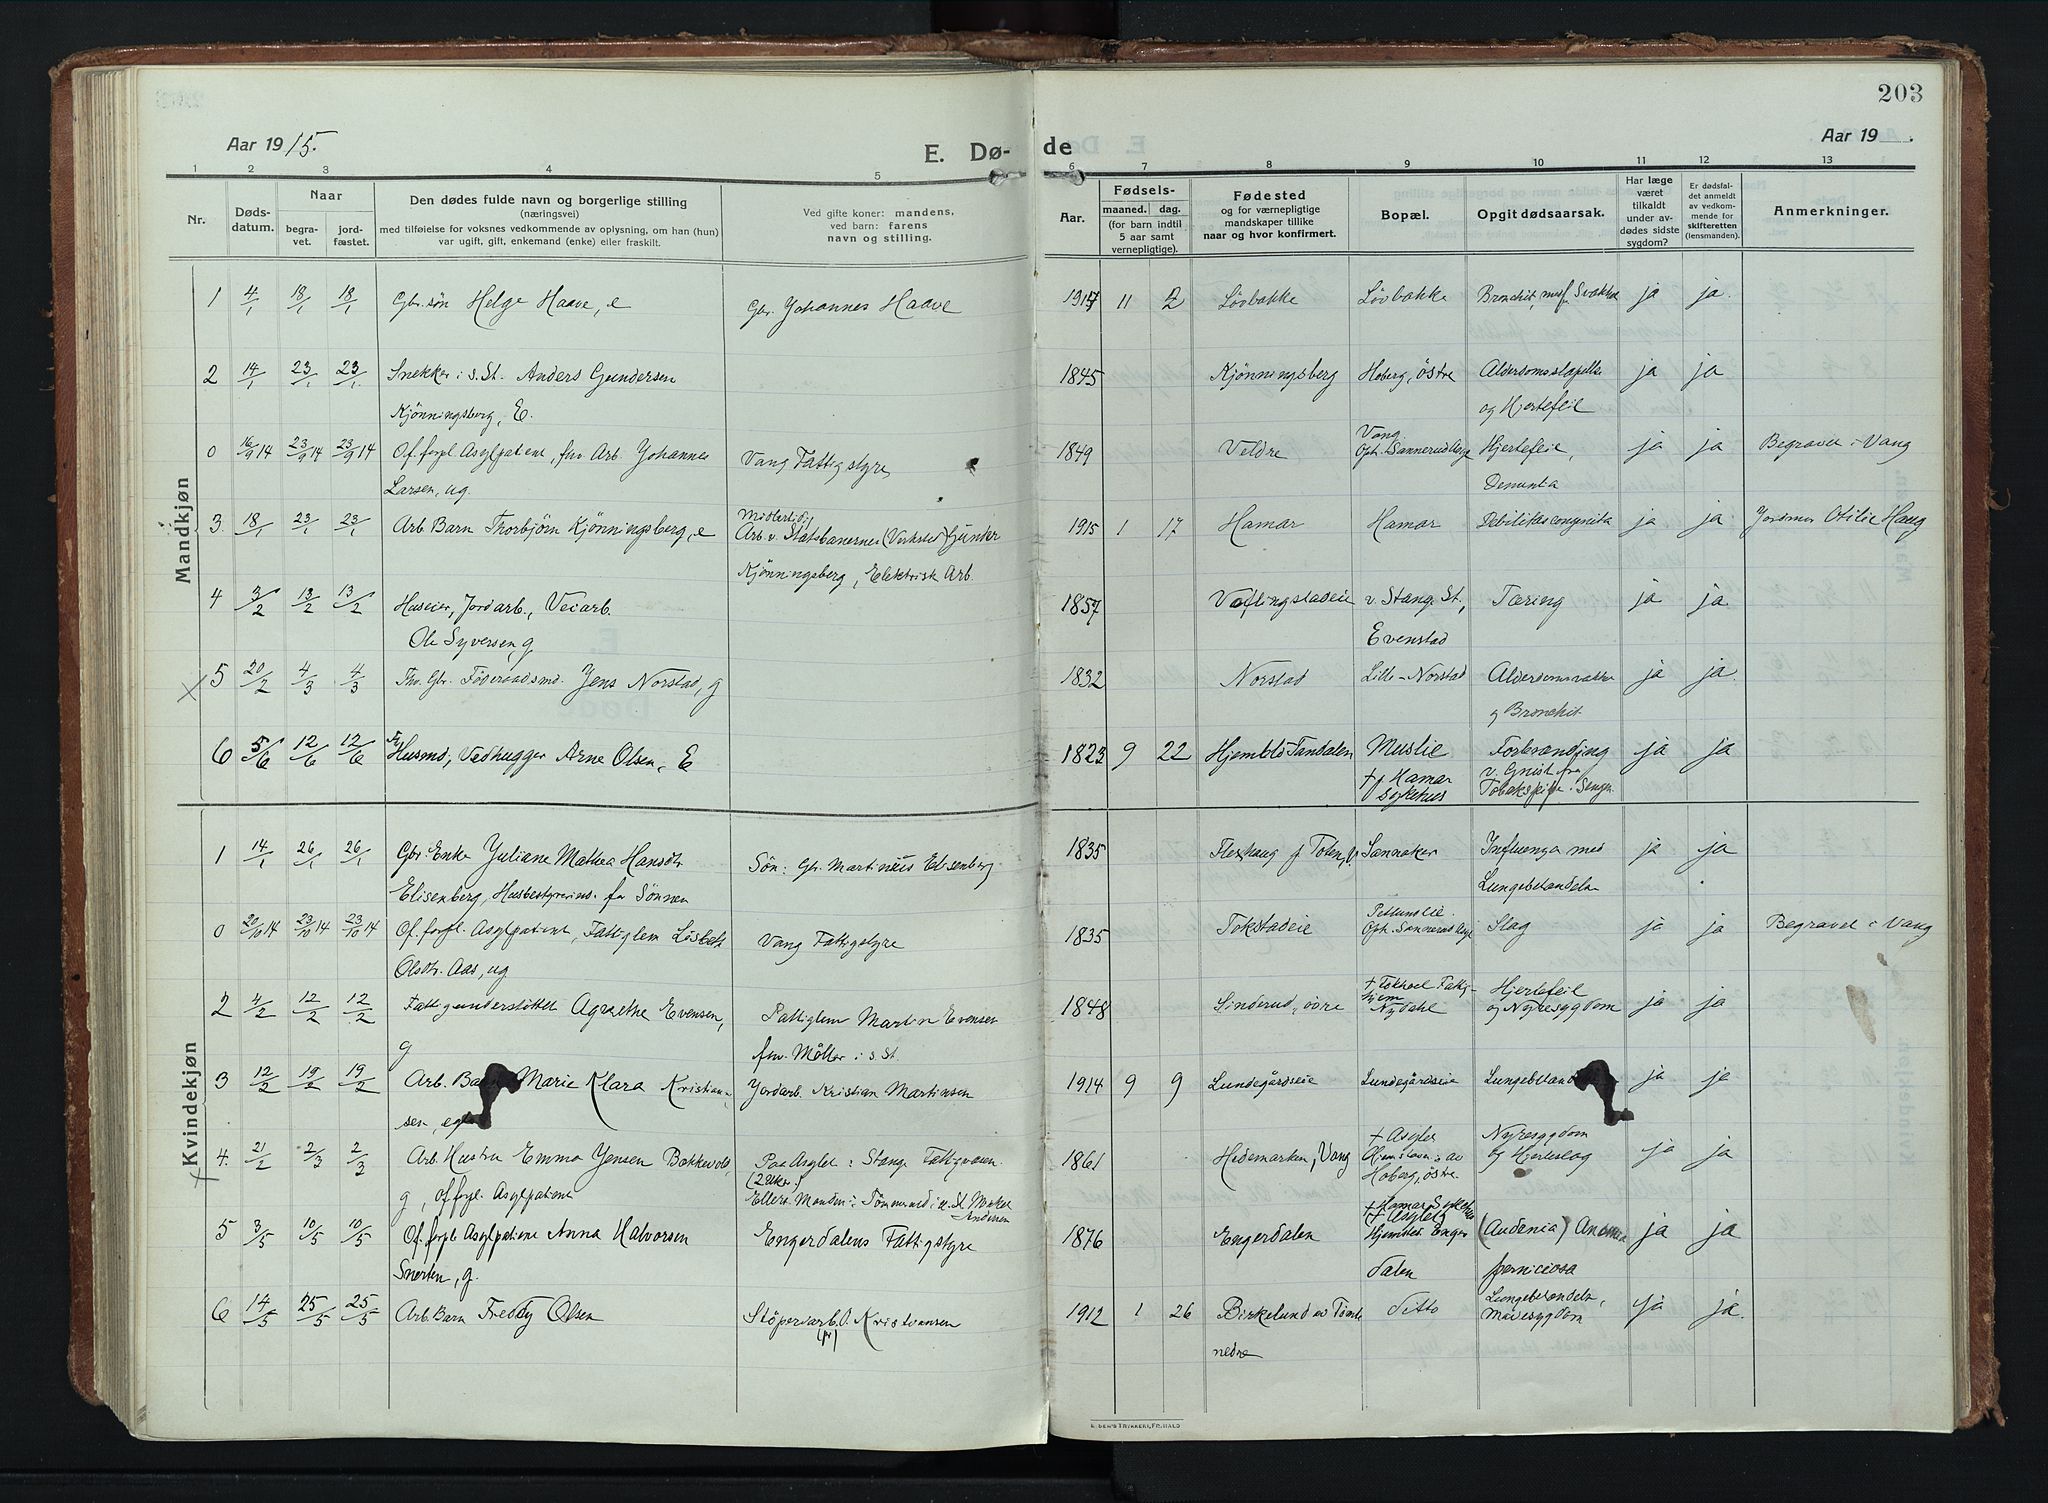 203
Aar 1915.
E. Dø-
de
Aar 19 .
1 2 3 4 5 6 7 8 9 10 11 12 13
Nr.
Døds-
datum.
Naar
begra-
vet.
jord-
fæstet.
Den dødes fulde navn og borgerlige stilling
(næringsvei)
med tilføielse for voksnes vedkommende av oplysning, om han (hun)
var ugift, gift, enkemand (enke) eller fraskilt.
Ved gifte koner: mandens,
ved barn: farens
navn og stilling.
Aar.
Fødsels-
maaned. dag.
(for barn indtil
5 aar samt
vernepligtige).
Fødested
og for værnepligtige
mandskaper tillike
naar og hvor konfirmert.
Bopæl.
Opgit dødsaarsak.
Har læge
været
tilkaldt
under av-
dødes sidste
sygdom?
Er dødsfal-
det anmeldt
av vedkom-
mende for
skifteretten
(lensmanden).
Anmerkninger.
Mandkjøn
1 4/1 18/1 18/1 Gbr. søn Helge Haave, e Gbr. Johannes Haave 11 2 Løvbakke Løvbakke Bronchit, ja ja.
2 14/1 23/1 23/1 Snekker i s. St. Anders Gundersen 1845 Kjønningsberg Hoberg, østre ja ja
Kjønningsberg, E. og Hjertefeil
0 16/9 14 23/9 14 23/9 14 Of. forpl. Asylpatient, fhv. Arb. Johannes Vang Fattigstyre 1849 Veldre Vang Hjertefeil, ja ja Begravet i Vang
Larsen, ug. Dementia
3 18/1 23/1 23/1 Arb. Barn Thorbjørn Kjønningsberg, e Midlertid. 1915 1 17 Hamar Hamar Debilitas congenita ja ja Jordmor Otilie Haug
Arb. v. Statsbanernes (Verksted)
Kjønningsberg, Elektrisk Arb.
4 3/2 13/2 13/2 Huseier, Jordarb., Veiarb. 1857 v. Stange St., Tæring ja ja
Ole Syversen, g Evenstad
5 20/2 4/3 4/3 Fhv. Gbr. Føderaadsmd. Jens Norstad, g 1832 Norstad Lille-Norstad ja ja.
Bronchit.
6 5/6 12/6 12/6 Husmd, Vedhugger Arne Olsen, E 1823 9 22 Muslie Forbrænding ja ja
† Hamar v. Gnist fra
Sykehus Tobakspipe i Sengen
Kvindekjøn
1 14/1 26/1 26/1 Gbr. Enke Juliane Mathea Hansdtr. Søn: Gbr. Martinius Elisenberg 1835 Sannaker Influenza med ja ja
Elisenberg, Husbestyrerinde for Sønnen Lungebetændelse
0 20/10 14 23/10 14 23/10 14 Of. forpl. Asylpatient, Fattiglem Lisbet Vang Fattigstyre 1835 Tokstadeie Slag ja ja Begravet i Vang
Olsdtr. Aas, ug
2 4/2 12/2 12/2 Fattigunderstøttet Agnethe Evensen, Fattiglem Martin Evensen 1848 Sinderud, øvre Hjertefeil ja ja
g fhv. Møller i s. St. Nydahl og Nyresygdom
3 12/2 19/2 19/2 Arb. Barn Marie Klara Kristian- Jordarb. Kristian Martinsen 1914 9 9 Lundegårdseie Lundegårdseie ja ja
sen,
4. 21/2 2/3 2/3 Arb. Hustru Emma Jensen Paa Asylet i Stange Fattigvæsen 1861 Hedemarken, Vang † Asylet Nyresygdom ja ja
g, of. forpl. Asylpatient Hoberg, østre. og Hjerteslag
5 3/5 10/5 10/5 Of. forpl. Asylpatient Anna Halvorsen Engerdalens Fattigstyre 1876 Engerdalen † Hamar Sykehus ja ja
Snerten, g. dalen perniciosa
6 14/5 25/5 25/5 Arb. Barn Freddy Olsen Støperiarb. O. Kristiansen 1912 1 26 Birkelund av Tomte Ditto Lungebetændelse, ja ja.
nedre
E. SEM'S TRYKKERI, FR.HALD